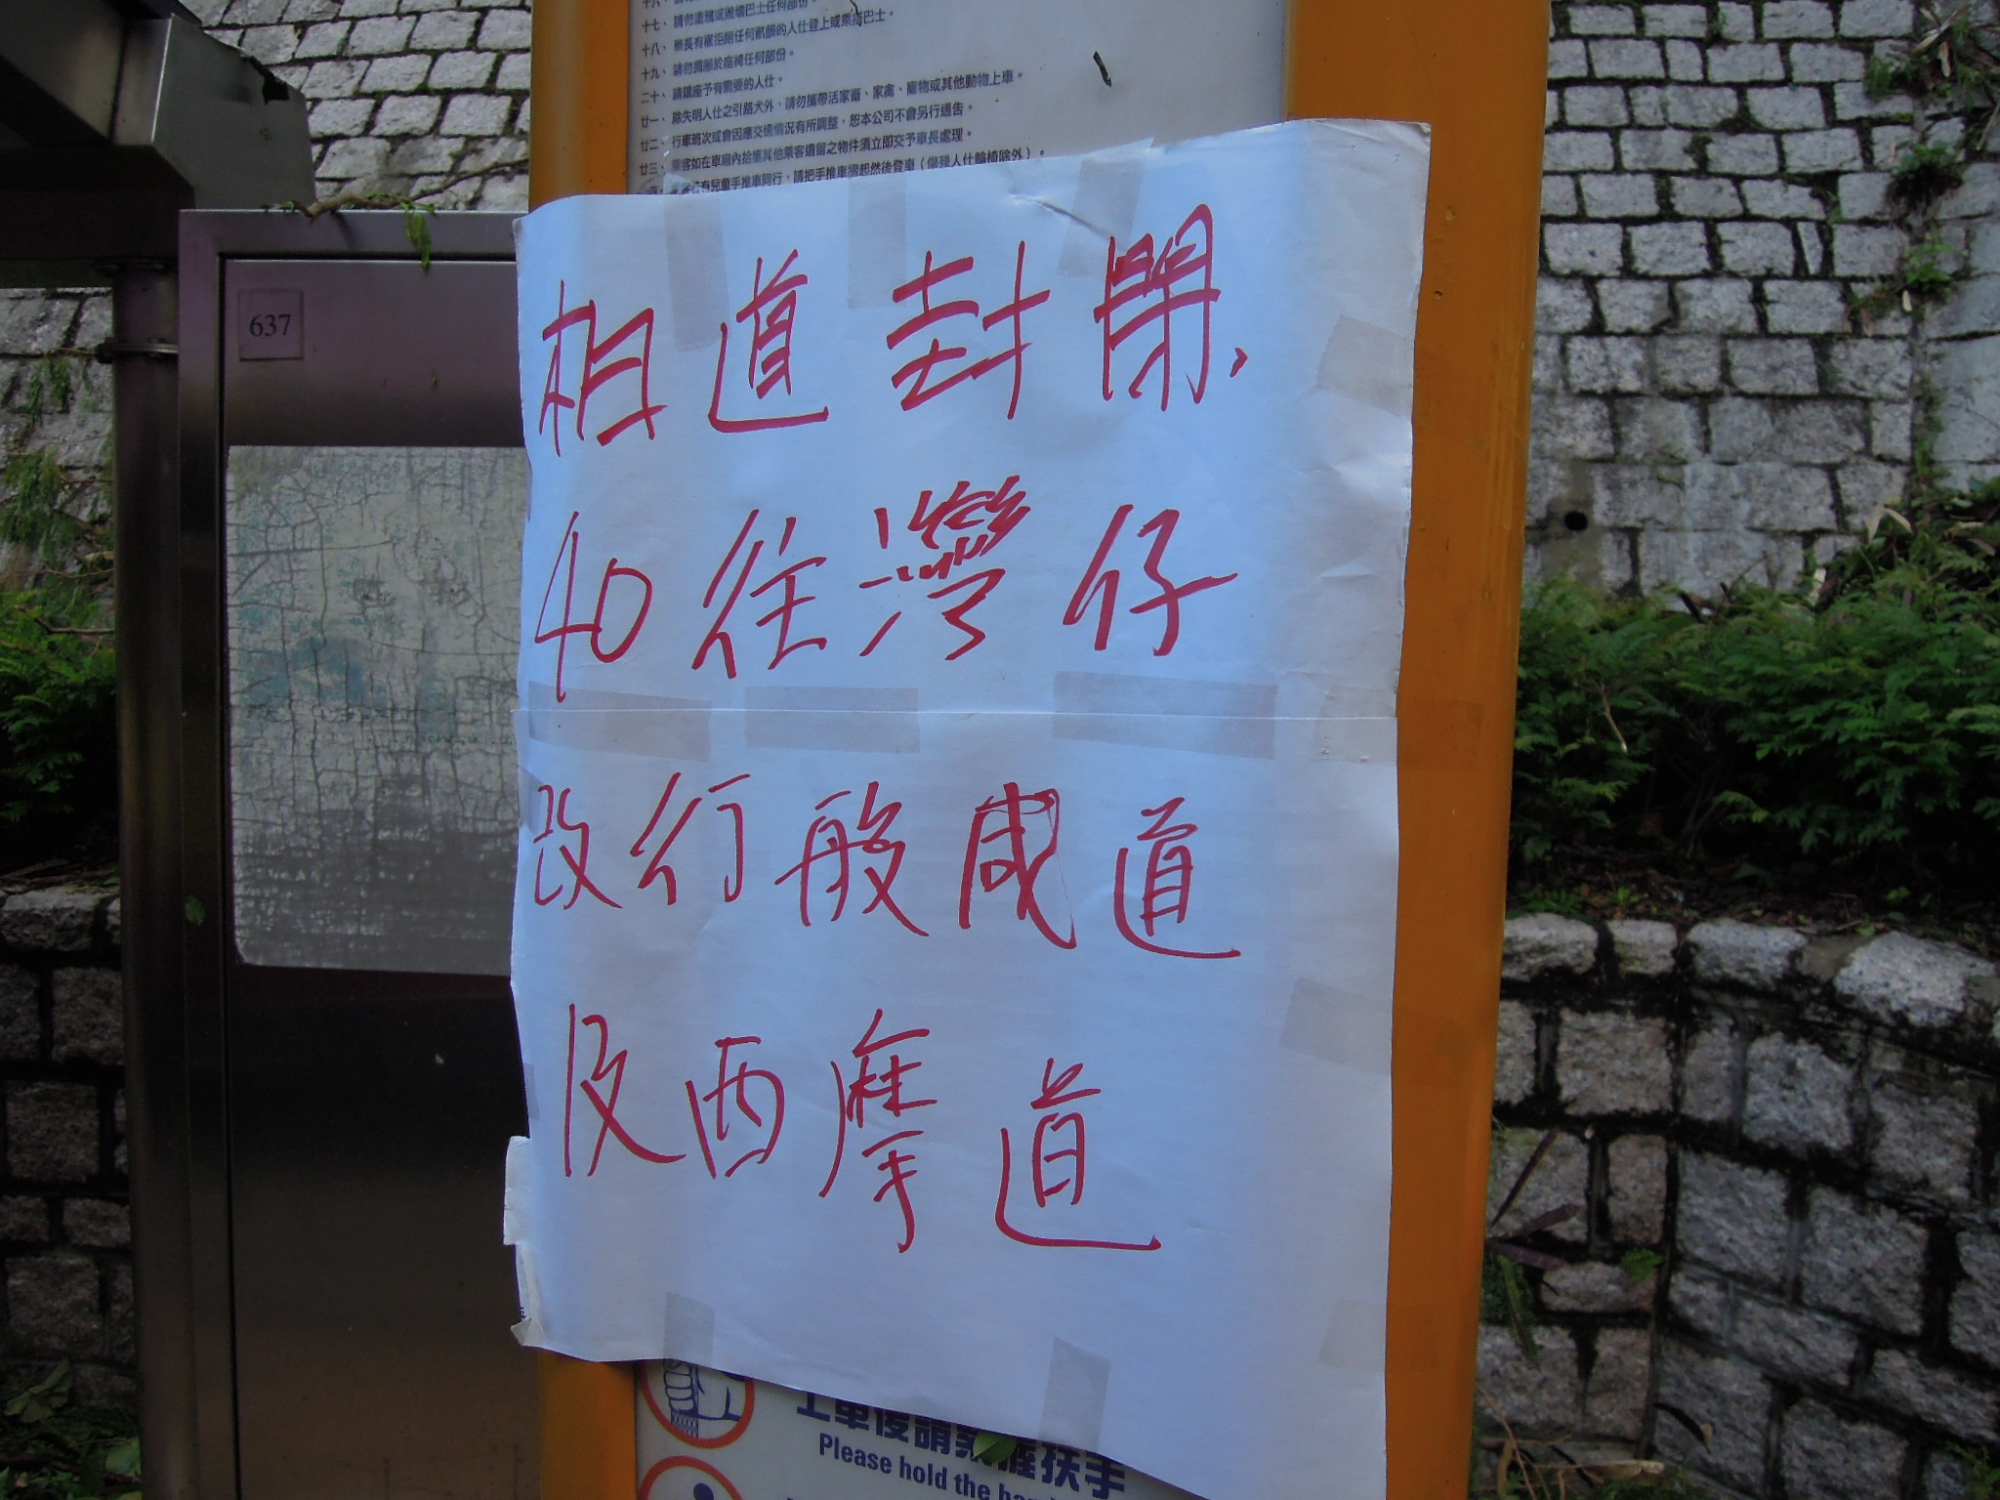 十七、請勿塗鴉或毀壞巴士任何部份。
十八、車長有權拒絕任何骯髒的人仕登上或乘搭巴士。
十九、請勿擱腳於座椅任何部份。
二十、請讓座予有需要的人仕。
廿一、除失明人仕之引路犬外，請勿攜帶活家畜、家禽、寵物或其他動物上車。
廿二、行車班次或會因應交通情況有所調整，恕本公司不會另行通告。
廿三、乘客如在車廂內拾獲其他乘客遺留之物件須立即交予車長處理。
有兒童手推車同行，請把手推車摺起然後登車（傷殘人仕輪椅除外）。
637
相道封閉，
40往灣仔
改行般咸道
及西摩道
上車後請緊握扶手
Please hold the